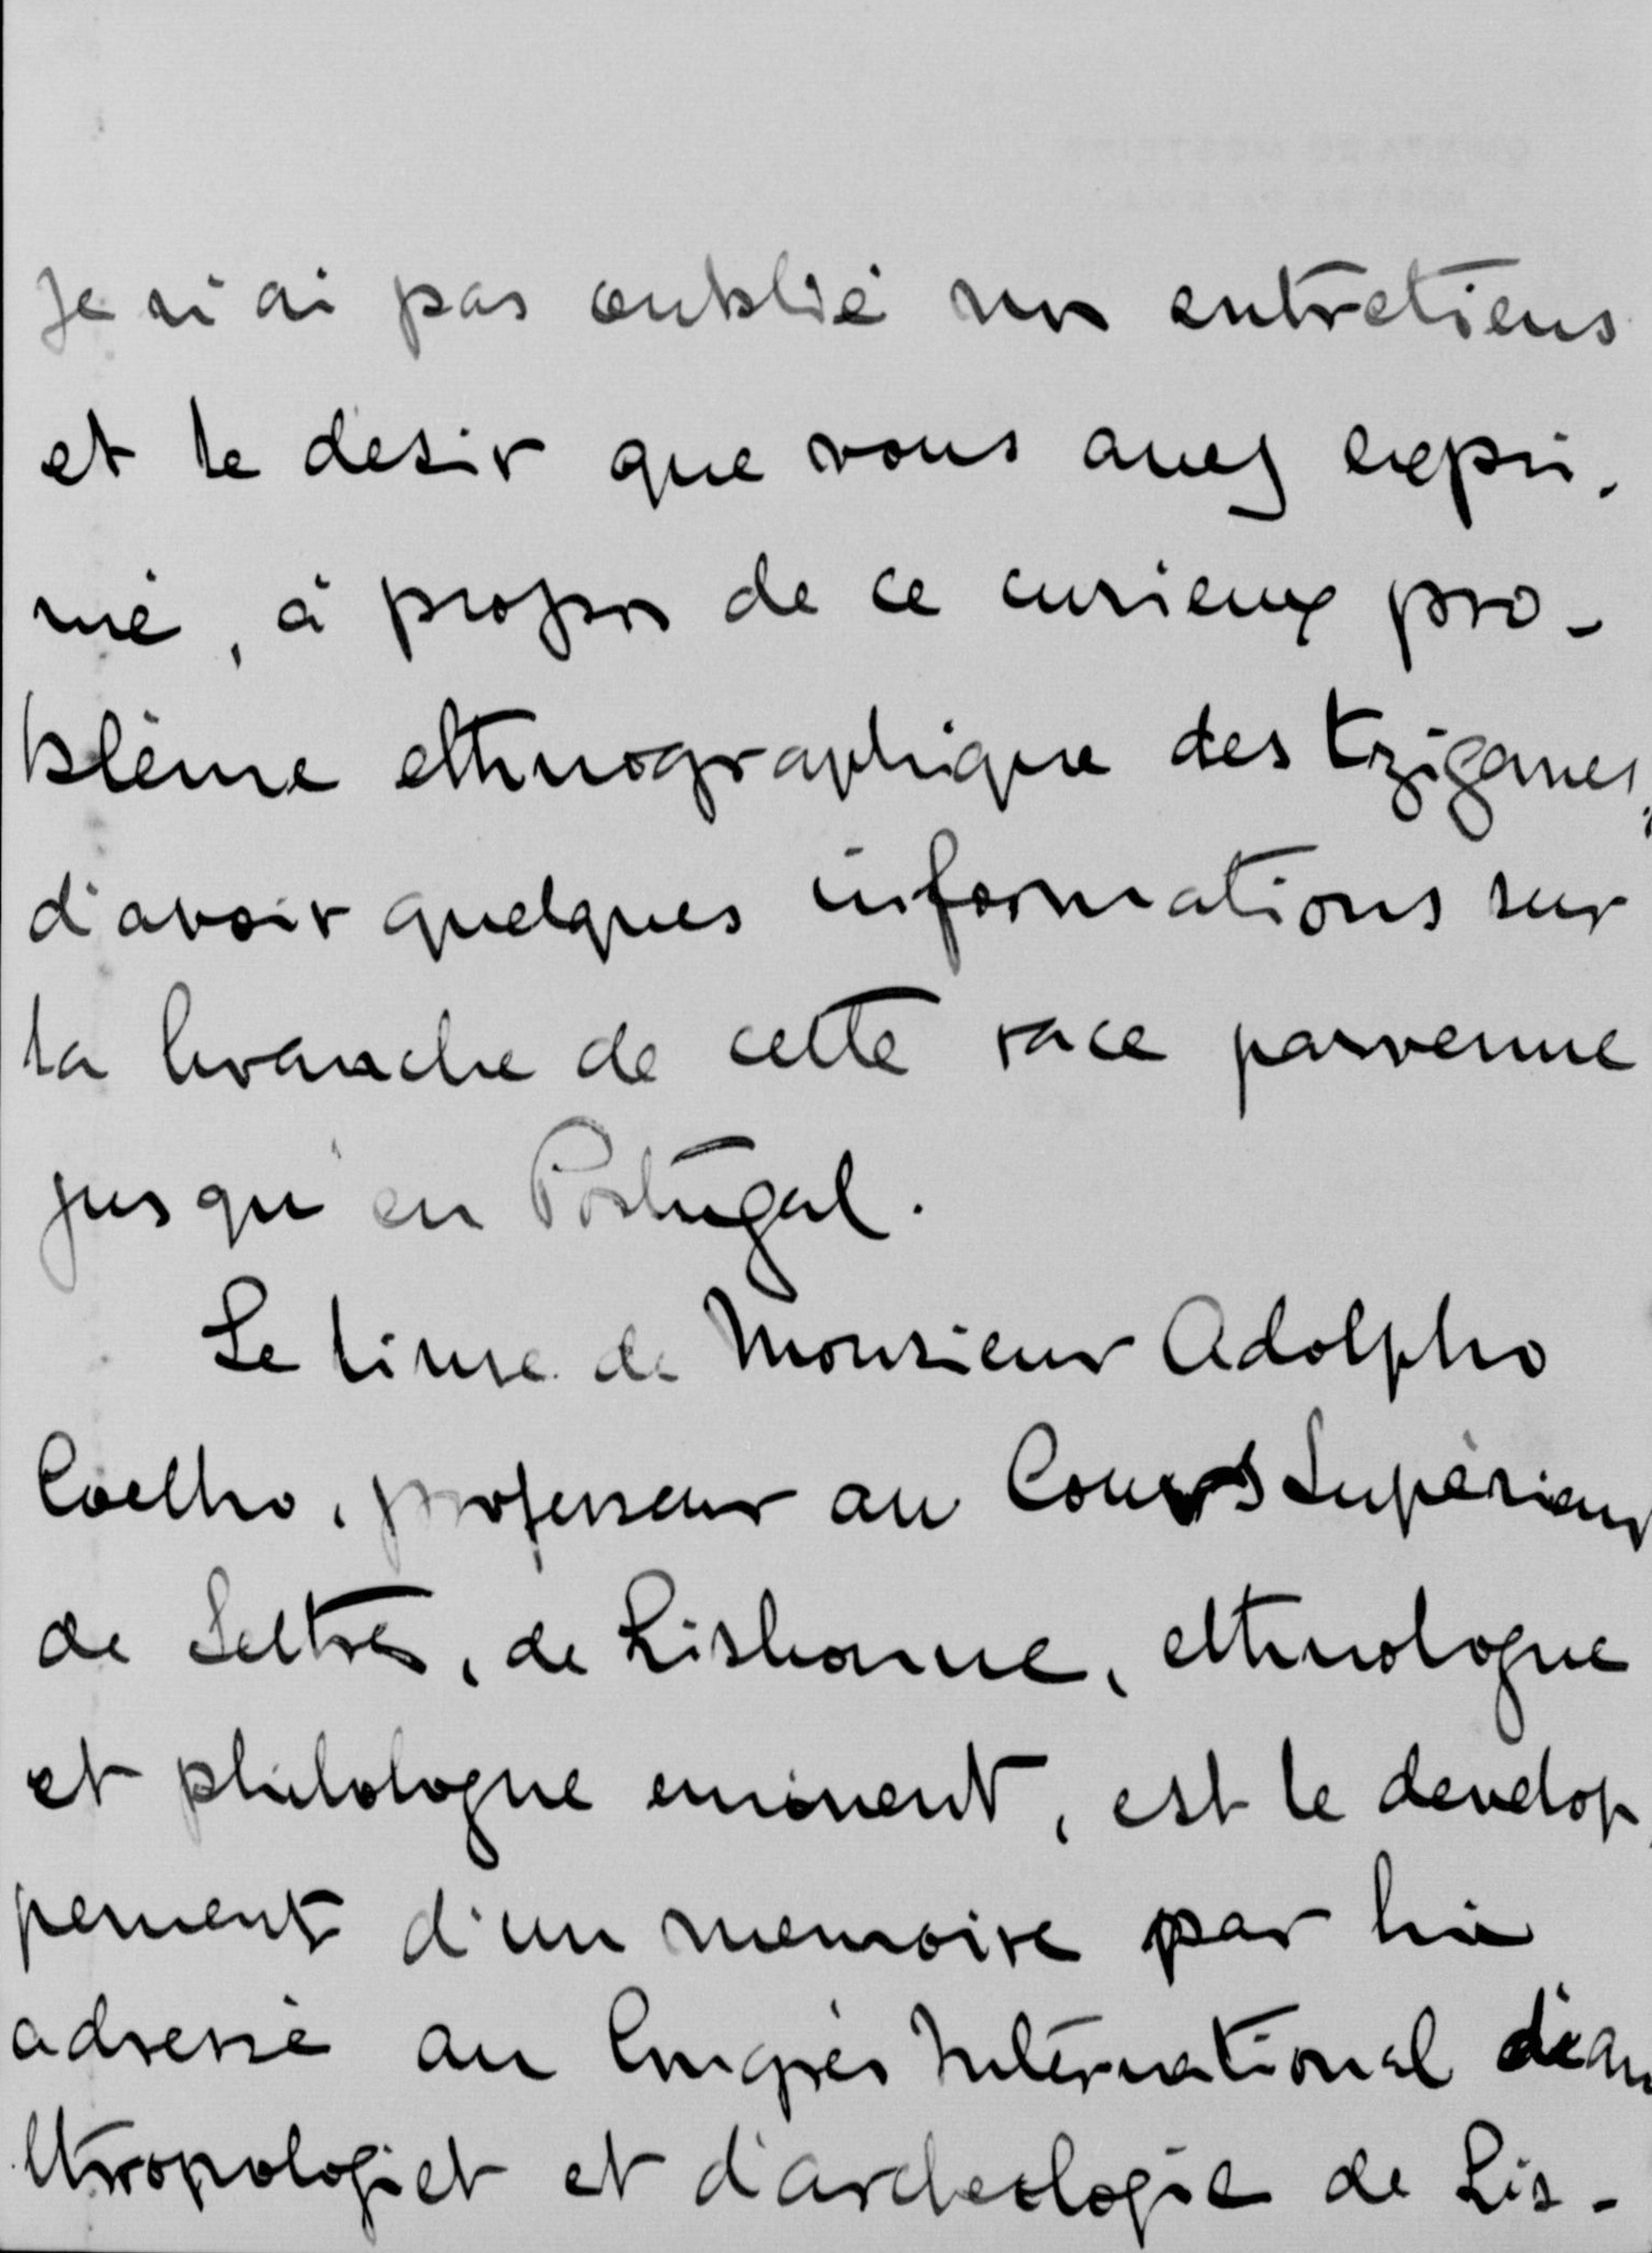 Je n'ai pas oublié nos entretiens
et le desir que vous avez expri-
mé, à propos de ce curieux pro-
blème ethnographique des tziganes,
d'avoir quelques informations sur
la branche de cette race parvenue
jusqu'en Portugal.
Le livre de Monsieur Adolpho
Coelho, professeur au Cours Supérieur
de Lettres, de Lisbonne, ethnologue
et philologue eminent, est le develop-
pement d'un memoire par lui
adressé au Congrès International d'an
thropologiet et d'archeologie de Lis-